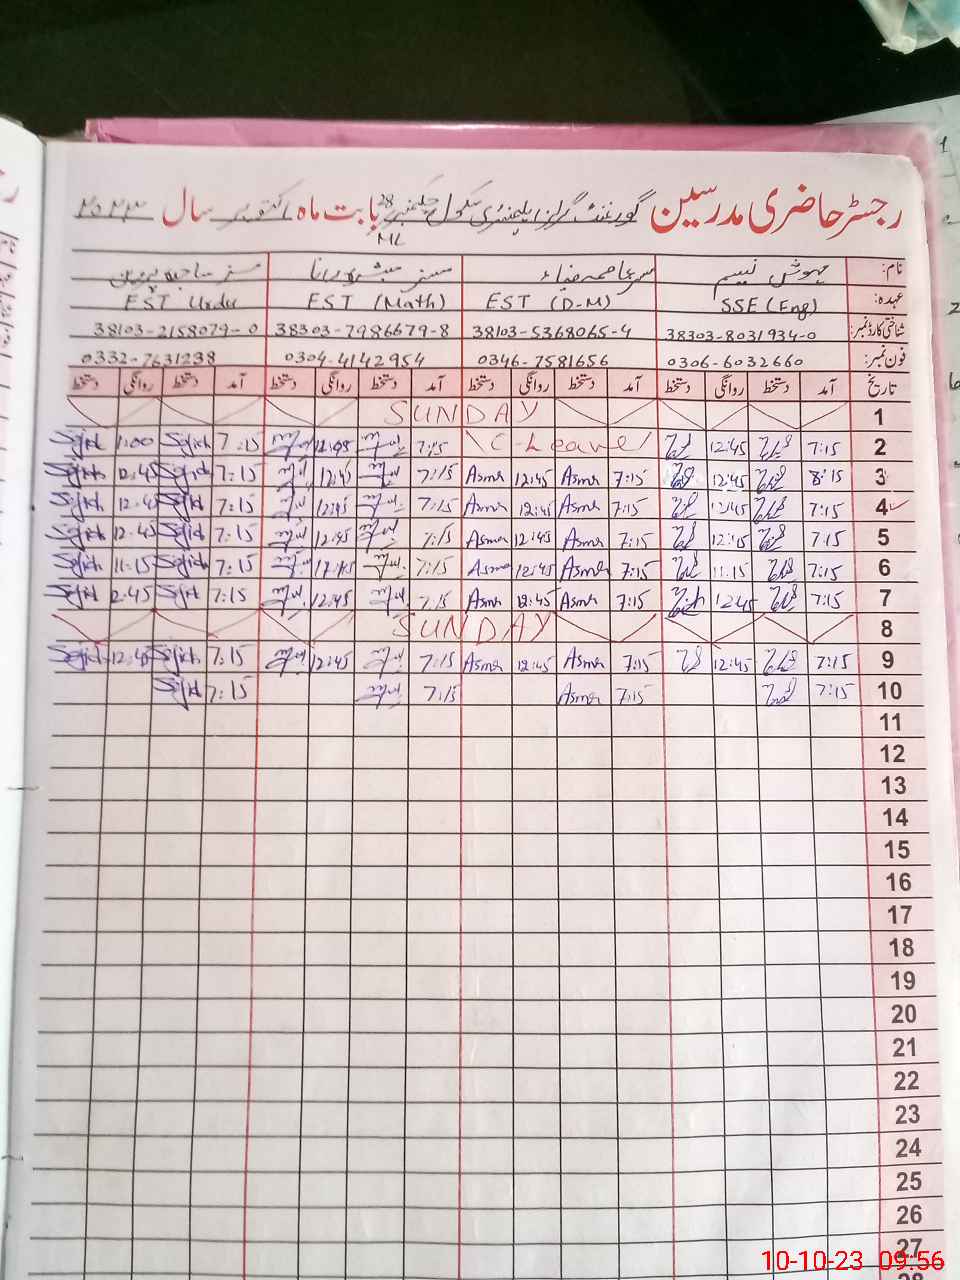 رجسٹر حاضری مدرسین گورنمنٹ گرلز ایلیمنٹری سکول چکنمبر 28 ML بابت ماہ اکتوبر سال ۲۰۲۳
نام: مہوش نسیم مسز عاصمہ ضیاء مسز مبشرہ رانا مسز ساجدہ پروین
عہدہ: SSE (Eng) EST (D-M) EST (Math) EST Urdu
شناختی کارڈ نمبر: 38303-8031934-0 38103-5368065-4 38303-7986679-8 38103-2158079-0
فون نمبر: 0306-6032660 0346-7581656 0304-4142954 0332-7631238
تاریخ آمد دستخط روانگی دستخط آمد دستخط روانگی دستخط آمد دستخط روانگی دستخط آمد دستخط روانگی دستخط
1 SUNDAY
2 7:15 12:45 C-Leave 7:15 7:15 Sajid 1:00 Sajid
3 8:15 12:45 7:15 Asma 12:45 Asma 7:15 12:45 7:15 Sajid 12:45 Sajid
4 7:15 12:45 7:15 Asma 12:45 Asma 7:15 12:45 7:15 Sajid 12:45 Sajid
5 7:15 12:45 7:15 Asma 12:45 Asma 7:15 12:45 7:15 Sajid 12:45 Sajid
6 7:15 11:15 7:15 Asma 12:45 Asma 7:15 7:15 Sajid 11:15 Sajid
7 7:15 12:45 7:15 Asma 12:45 Asma 7:15 12:45 7:15 Sajid 2:45 Sajid
8 SUNDAY
9 7:15 12:45 7:15 Asma 12:45 Asma 7:15 12:45 7:15 Sajid 12:45 Sajid
10 7:15 7:15 Asma 7:15 7:15 Sajid
11
12
13
14
15
16
17
18
19
20
21
22
23
24
25
26
27
28
10-10-23 09:56